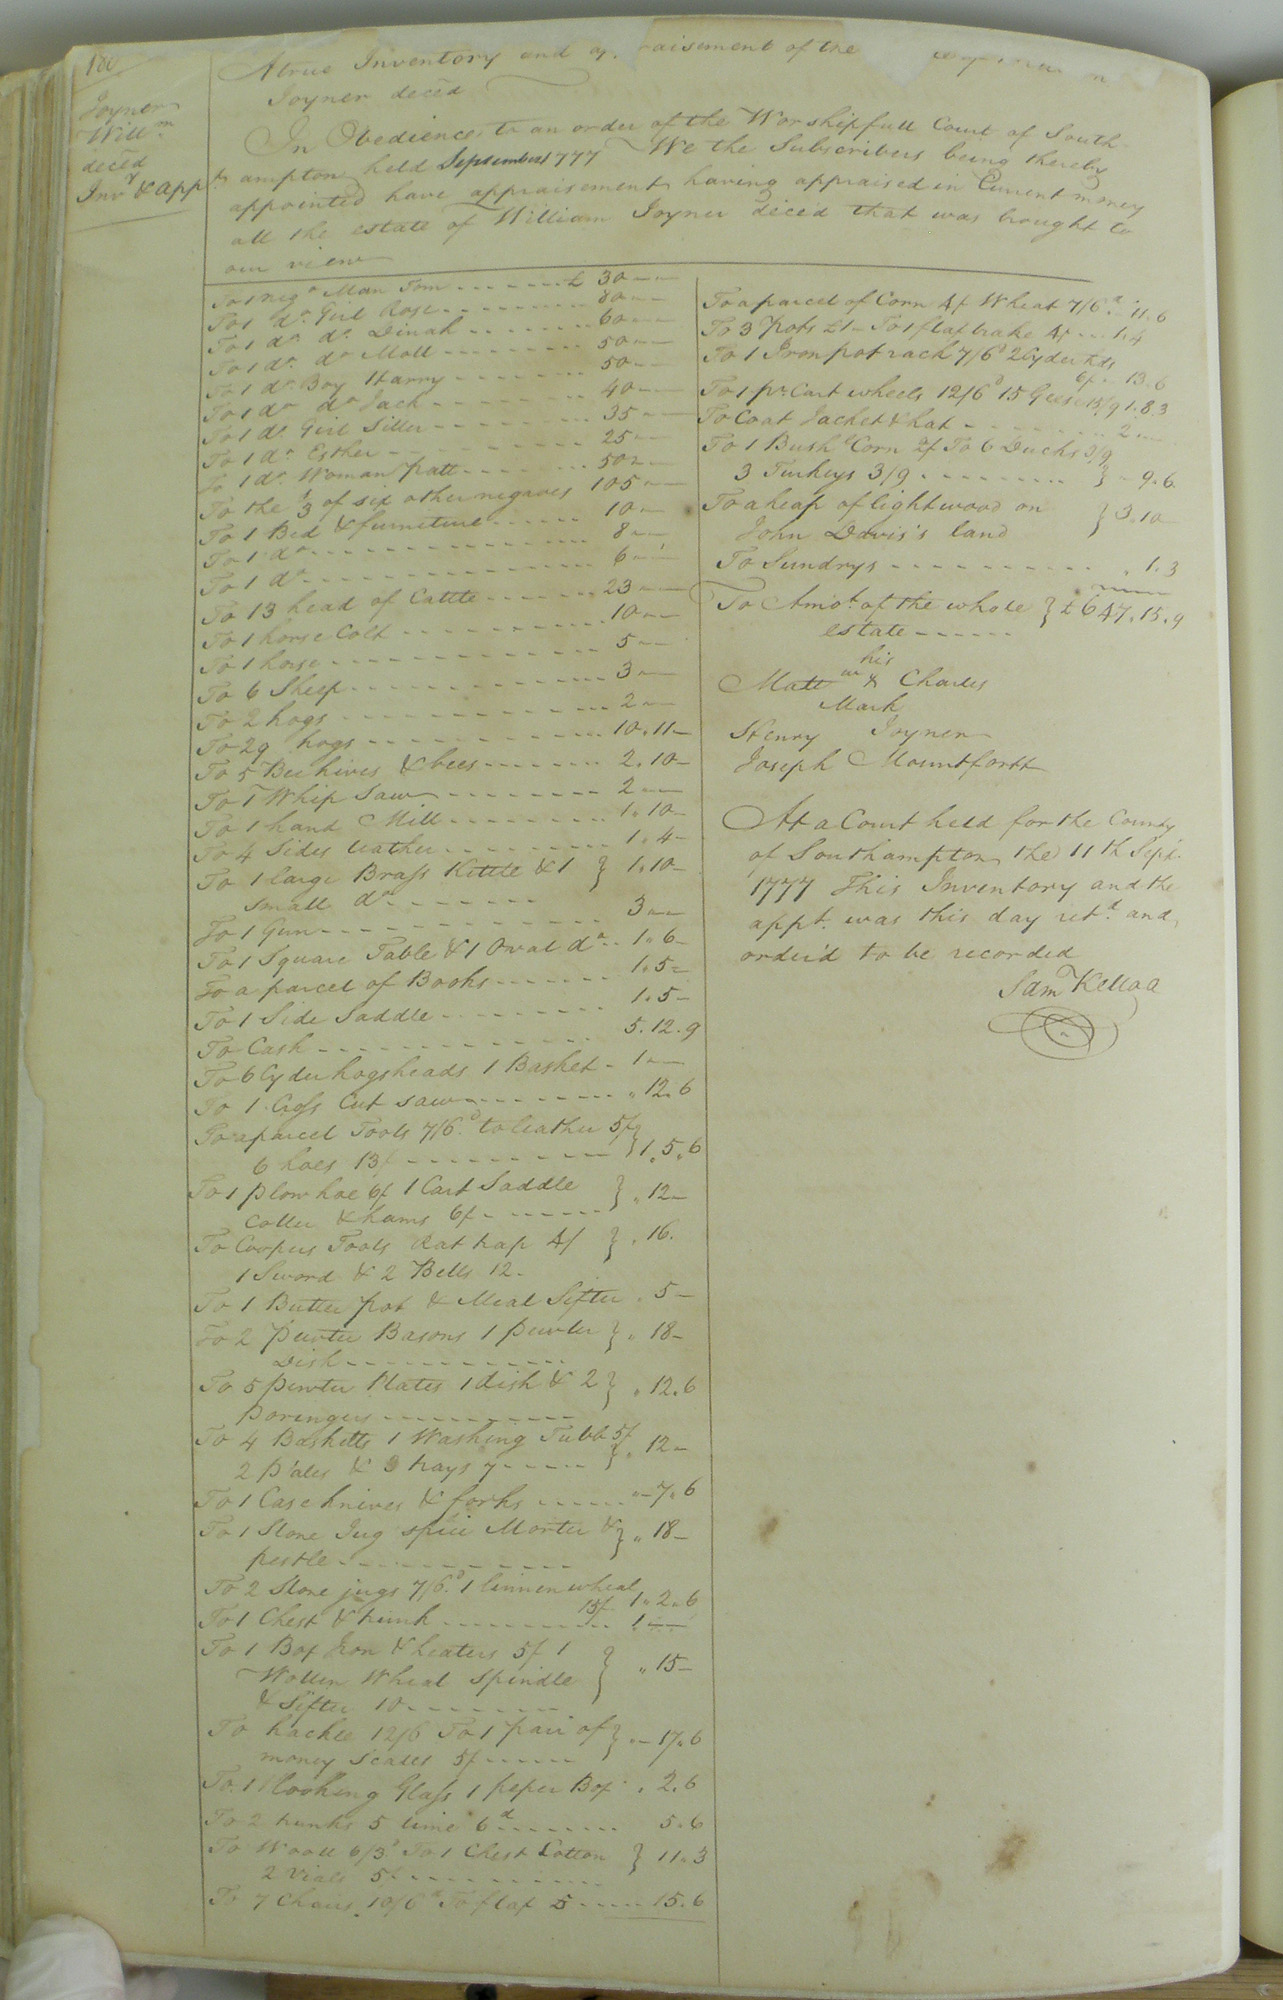 180
Joyner
Willm
decēd
Invy & Appt
A true Inventory and ap raisement of the
Joyner decēd
In Obedience to an order of the Worshipfull Court of South
ampton held September 1777 We the Subscribers being thereby
appointed have appraisement having appraised in Current money
all the estate of William Joyner deced that was brought to
our view
To 1 nego Man Tom ------- £ 30 --
To 1 do. Girl Rose -------- 80 --
To 1 do do. Dinah -------- 60 --
To 1 do. do Moll -------- 50 --
To 1 do Boy Harry -------- 50 --
To 1 do do Jack -------- 40 --
To 1 do. Girl Siller -------- 35 --
To 1 do Esther -------- 25 --
To 1 do. Woman patt -------- 50 --
To the 1/3 of six other negroes 105 --
To 1 Bed & furneture ------ 10 --
To 1 do ------------ 8 --
To 1 do ------------ 6 --
To 13 head of Cattle ------- 23 --
To 1 horse Colt ---------- 10 --
To 1 horse ------------ 5 --
To 6 Sheep ------------ 3 --
To 2 hogs ------------ 2 --
To 29 hogs ----------- 10.11 -
To 5 Bee hives & bees ------- 2.10 -
To 1 Whip Saw --------- 2 --
To 1 hand Mill --------- 1.10 -
To 4 Sides leather --------- 1.4 -
To 1 large Brass Kettle & 1 } 1.10 -
small do -------
To 1 Gun ----------- 3 --
To 1 Square Table & 1 Oval do -- 1.6 -
To a parcel of Books ------ 1.5 -
To 1 Side Saddle -------- 1.5 -
To Cash ------------ 5.12.9
To 6 Cyder hogsheads 1 Basket - 1 --
To 1 Cross Cut saw -------- " 12.6
To a parcel Tools 7/6d. to leather 5/
6 hoes 13/ ---------- } 1.5.6
To 1 plow hoe 6/ 1 Cart Saddle } " 12 -
Coller & hams 6/ -------
To Coopers Tools Rat trap 4/ } " 16.
1 Sword & 2 Bells 12.
To 1 Butter pot & Meal Sifter . 5 -
To 2 pewter Basons 1 pewter } " 18 -
Dish ------------
To 5 pewter Plates 1 dish & 2 } " 12.6
Poringers ----------
To 4 Basketts 1 Washing Tubb 5/
2 Pales & 3 trays 7 ----- } " 12 -
To 1 Case knives & forks ------ " 7.6
To 1 Stone Jug spice Morter & } " 18 -
pestle ------------
To 2 Stone jugs 7/6d. 1 linnen wheal
15/ 1.2.6
To 1 Chest & trunk ---------- 1 --
To 1 Box Iron & heaters 5/ 1
Wollen Wheal Spindle } " 15 -
& Sifter 10 -------
To hackle 12/6 To 1 pair of } " 17.6
money Scales 5/ ------
To 1 looking Glass 1 peper Box . 2.6
To 2 trunks 5 lime 6d -------- 5.6
To Wooll 6/3 To 1 Chest Cotton } 11.3
2 Vials 5/ -----------
To 7 Chairs 10/6d To flax 5 ----- 15.6
To a parcel of Corn 4/ Wheat 7/6d. -- 11.6
To 3 Pots £1 - To 1 flax brake 4/ --- 1.4
To 1 Iron pot rack 7/6d 2 Cyder hds
6/ -- 13.6
To 1 pr. Cart wheels 12/6d 15 Geese 15/9 1.8.3
To Coat Jacket & hat ------- 2 --
To 1 Bushl Corn 2/ To 6 Ducks 3/9
3 Turkeys 3/9 --------- } - 9.6
To a heap of lightwood on } 3.10
John Davis's land
To Sundrys ---------- " 1.3
To Amot. of the whole } £ 647.15.9
estate ------
his
Matt x Charles
Mark
Henry Joyner
Joseph Mountfortt
At a Court held for the County
of Southampton the 11th Sept.
1777 This Inventory and the
appt. was this day retd. and
order'd to be recorded
Sam Kelloa